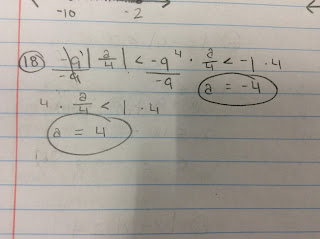 -10 -2
(18) -9 |a/4| < -9 4 · a/4 < -1 · 4
-9 -9 a = -4
4 · a/4 < 1 · 4
a = 4